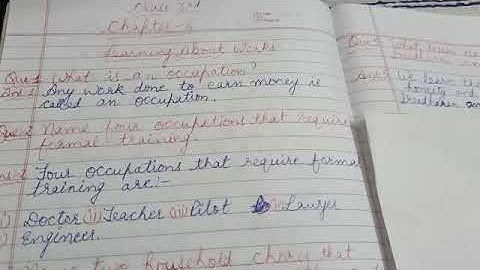 Class 3rd
Chapter-
Learning About Works
Ques-1 What is an occupation?
Ans-1 Any work done to earn money is
called an occupation.
Ques-2 Name four occupations that require
formal training.
Ans-2 Four occupations that require formal
training are:-
(i) Doctor (ii) Teacher (iii) Pilot Lawyer
Engineer.
two household chory that
Ques
Ans We learn
honesty